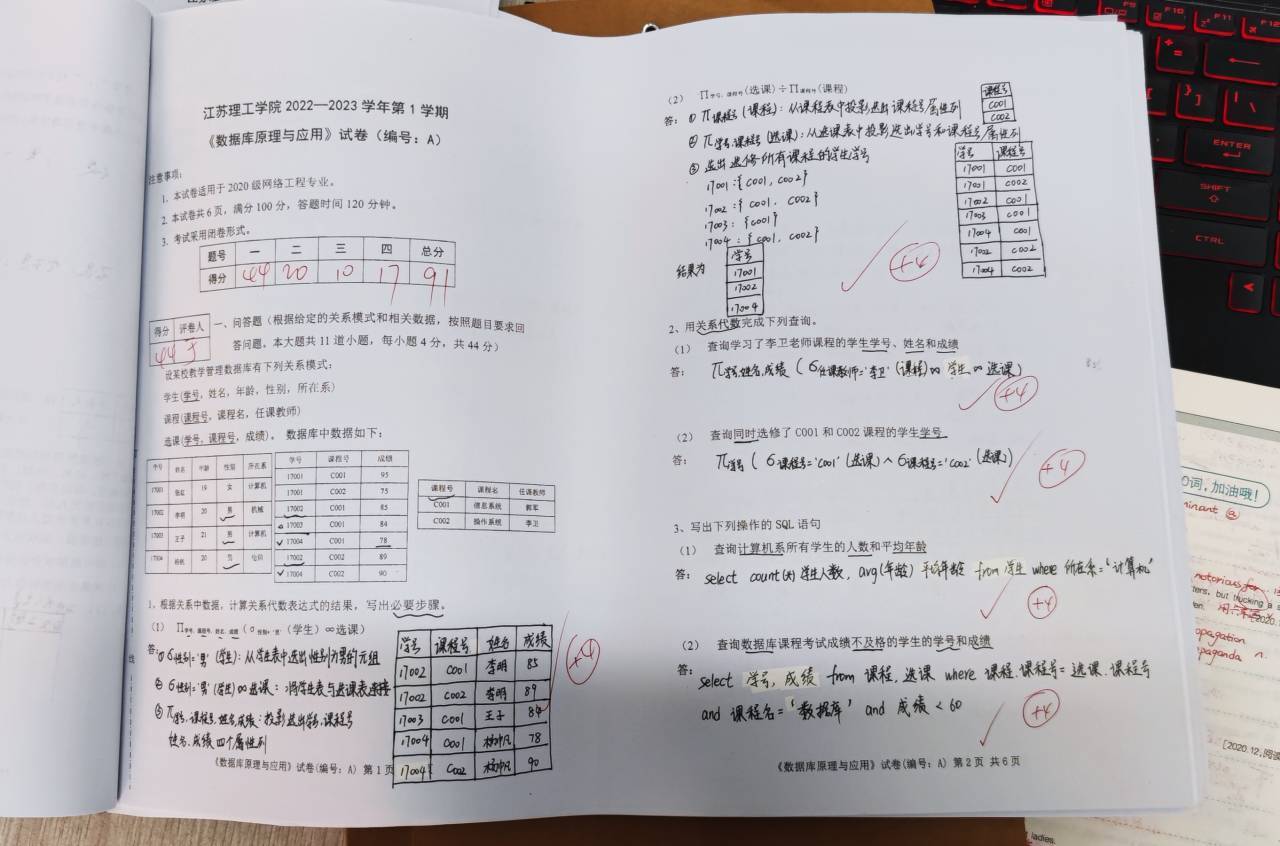 江苏理工学院 2022—2023 学年第 1 学期
《数据库原理与应用》试卷（编号：A）
注意事项：
1. 本试卷适用于 2020 级网络工程专业。
2. 本试卷共 6 页，满分 100 分，答题时间 120 分钟。
3. 考试采用闭卷形式。
题号 一 二 三 四 总分
得分 44 20 10 17 91
得分 评卷人
44
一、问答题（根据给定的关系模式和相关数据，按照题目要求回
答问题，本大题共 11 道小题，每小题 4 分，共 44 分）
设某校教学管理数据库有下列关系模式：
学生(学号，姓名，年龄，性别，所在系)
课程(课程号，课程名，任课教师)
选课(学号，课程号，成绩)。 数据库中数据如下：
学号 姓名 年龄 性别 所在系
17001 19 女 计算机
17002 李明 20 男 机械
17003 王子 21 男 计算机
17004 20 男
学号 课程号 成绩
17001 C001 95
17001 C002 75
17002 C001 85
17003 C001 84
17004 C001 78
17002 C002 89
17004 C002 90
课程号 课程名 任课教师
C001 信息系统 郭军
C002 操作系统 李卫
1、根据关系中数据，计算关系代数表达式的结果，写出必要步骤。
（1） Π学号，课程号，姓名，成绩 (σ性别='男' (学生) ∞选课)
答：① σ性别='男' (学生)：从学生表中选出性别为男的元组
② σ性别='男' (学生) ∞ 选课：将学生表与选课表连接
③ π学号.课程号.姓名.成绩：投影选出学号.课程号
姓名.成绩四个属性列
学号 课程号 姓名 成绩
17002 C001 李明 85
17002 C002 李明 89
17003 C001 王子 84
17004 C001 78
17004 C002 90
+4
《数据库原理与应用》试卷(编号：A) 第 1 页
（2） Π学号，课程号(选课)÷Π课程号(课程)
答： ① π课程号 (课程)：从课程表中投影选出课程号属性列
② π学号.课程号 (选课)：从选课表中投影选出学号和课程号属性列
③ 选出选修所有课程的学生学号
17001：{ C001, C002 }
17002：{ C001. C002 }
17003：{ C001 }
17004：{ C001. C002 }
结果为
学号
17001
17002
17004
课程号
C001
C002
学号 课程号
17001 C001
17001 C002
17002 C001
17003 C001
17004 C001
17002 C002
17004 C002
+4
2、用关系代数完成下列查询。
（1） 查询学习了李卫老师课程的学生学号、姓名和成绩
答： π学号.姓名.成绩 ( σ任课教师='李卫' (课程) ∞ 学生 ∞ 选课)
+4
（2） 查询同时选修了 C001 和 C002 课程的学生学号
答： π学号 ( σ课程号='C001' (选课) ∧ σ课程号='C002' (选课)
+4
3、写出下列操作的 SQL 语句
（1） 查询计算机系所有学生的人数和平均年龄
答： select count(*) 学生人数, avg(年龄) 平均年龄 from 学生 where 所在系='计算机'
+4
（2） 查询数据库课程考试成绩不及格的学生的学号和成绩
答： select 学号, 成绩 from 课程, 选课 where 课程.课程号=选课.课程号
and 课程名='数据库' and 成绩 < 60
+4
《数据库原理与应用》试卷(编号：A) 第 2 页 共 6 页
F9 F10 F11 F12
ENTER
SHIFT
CTRL
词，加油哦！
notorious
[2020.12,阅读
ladies.